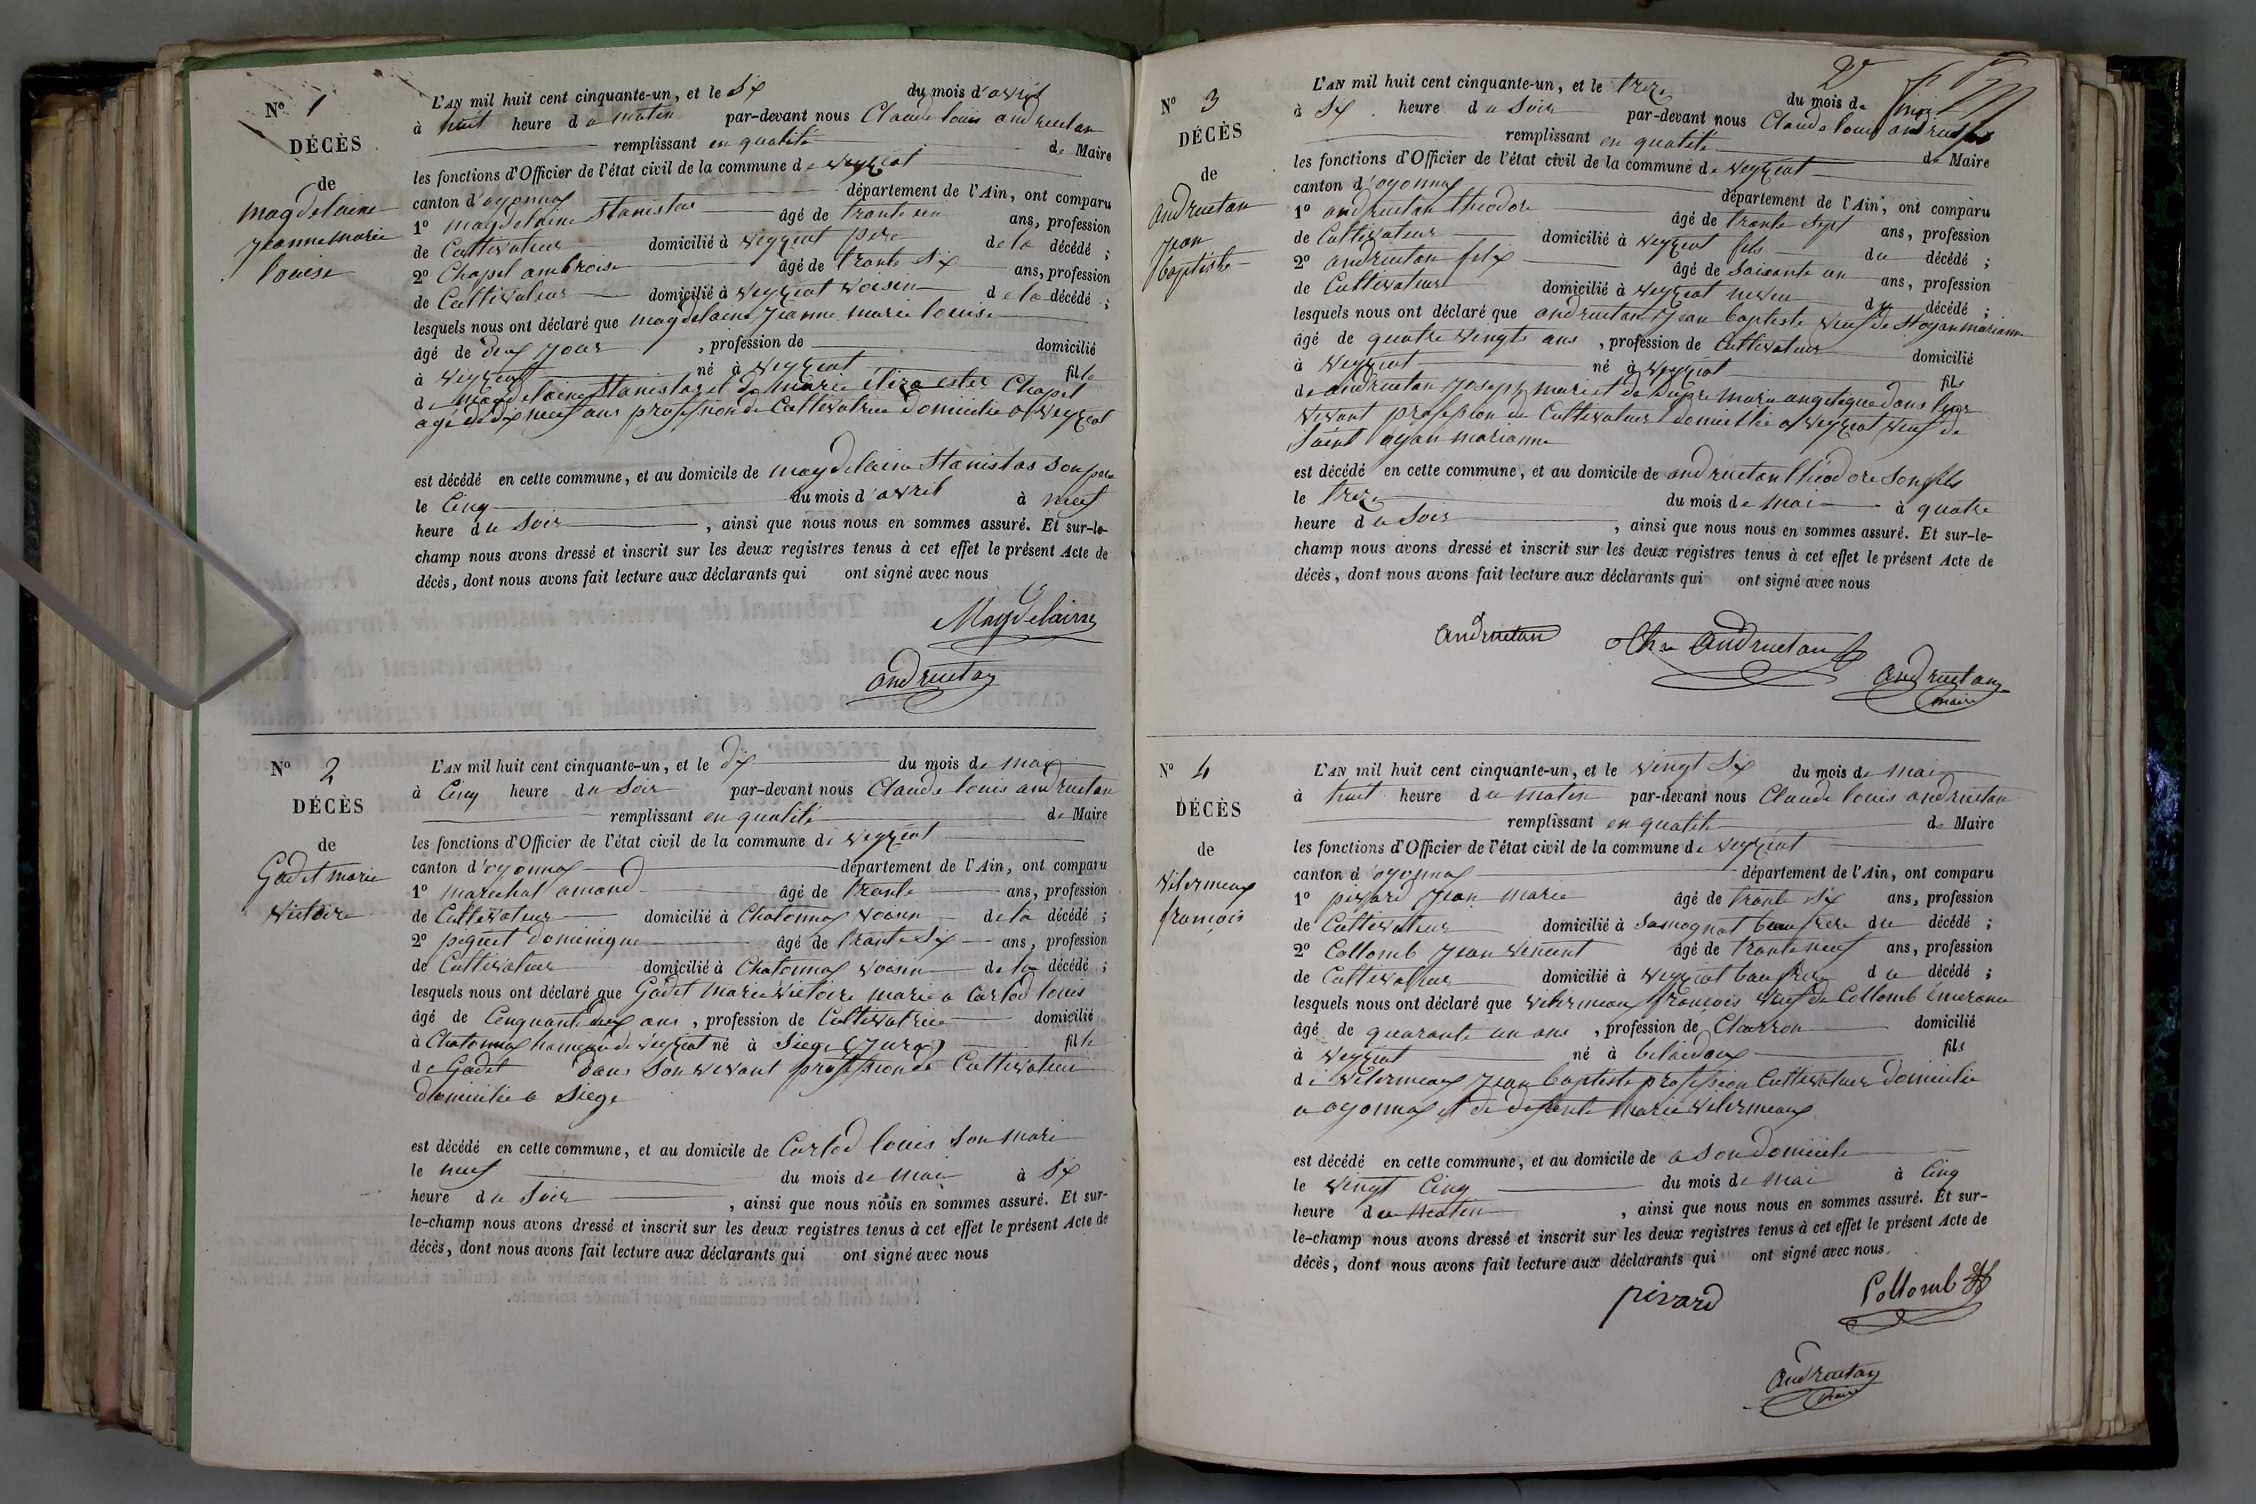 N° 1
DÉCÈS
de
magdelaine
jeanne marie
louise
L'AN mil huit cent cinquante-un, et le six du mois d'avril
à huit heure du matin par-devant nous Claude louis andruetan
remplissant en qualité de Maire
les fonctions d'Officier de l'état civil de la commune de veyziat
canton d'oyonnax département de l'Ain, ont comparu
1° magdelaine Stanislas âgé de trante un ans, profession
de Cultivateur domicilié à veyziat pere de la décédé ;
2° Chapel ambroise âgé de trante six ans, profession
de Cultivateur domicilié à veyziat voisin de la décédé ;
lesquels nous ont déclaré que magdelaine jeanne marie louise
âgé de deux jour , profession de domicilié
à veyziat né à veyziat fille
de magdelaine Stanislas et de marie éliza ester Chapel
agé de dix neuf ans profession de Cultivatrice domicilié a veyziat
est décédé en cette commune, et au domicile de magdelaine Stanislas son pere
le Cinq du mois d'avril à neuf
heure du soir , ainsi que nous nous en sommes assuré. Et sur-le-
champ nous avons dressé et inscrit sur les deux registres tenus à cet effet le présent Acte de
décès, dont nous avons fait lecture aux déclarants qui ont signé avec nous
Magdelaine
andruetan
N° 2
DÉCÈS
de
Gadet marie
victoire
L'AN mil huit cent cinquante-un, et le dix du mois de mai
à Cinq heure du soir par-devant nous Claude louis andruetan
remplissant en qualité de Maire
les fonctions d'Officier de l'état civil de la commune de veyziat
canton d'oyonnax département de l'Ain, ont comparu
1° marechal amand âgé de trante ans, profession
de Cultivateur domicilié à Chatonnax voisin de la décédé ;
2° piquet dominique âgé de trante six ans, profession
de Cultivateur domicilié à Chatonnax voisin de la décédé ;
lesquels nous ont déclaré que Gadet marie victoire marie a Carlod louis
âgé de Cinquant deux ans , profession de Cultivatrice domicilié
à Chatonnax hameau de veyziat né à Siege (jura) fille
de Gadet dans son vivant profession de Cultivateur
domicilié a Siege
est décédé en cette commune, et au domicile de Carlod louis son mari
le neuf du mois de mai à six
heure du soir , ainsi que nous nous en sommes assuré. Et sur-
le-champ nous avons dressé et inscrit sur les deux registres tenus à cet effet le présent Acte de
décès, dont nous avons fait lecture aux déclarants qui ont signé avec nous
2
N° 3
DÉCÈS
de
andruetan
jean
baptiste
L'AN mil huit cent cinquante-un, et le treze du mois de mai
à six heure du soir par-devant nous Claude louis andruetan
remplissant en qualité de Maire
les fonctions d'Officier de l'état civil de la commune de veyziat
canton d'oyonnax département de l'Ain, ont comparu
1° andruetan théodore âgé de trante sept ans, profession
de Cultivateur domicilié à veyziat fils du décédé ;
2° andruetan felix âgé de soisante un ans, profession
de Cultivateur domicilié à veyziat neveu du décédé ;
lesquels nous ont déclaré que andruetan jean baptiste veuf de st oyan marianne
âgé de quatre vingts ans , profession de Cultivateur domicilié
à veyziat né à veyziat fils
de andruetan joseph marie et de dupre marie angelique dans leur
vivant profession de Cultivateur domicillié a veyziat veuf de
saint oyan marianne
est décédé en cette commune, et au domicile de andruetan théodore son fils
le treze du mois de mai à quatre
heure du soir , ainsi que nous nous en sommes assuré. Et sur-le-
champ nous avons dressé et inscrit sur les deux registres tenus à cet effet le présent Acte de
décès, dont nous avons fait lecture aux déclarants qui ont signé avec nous
andruetan andruetan
andruetan
maire
N° 4
DÉCÈS
de
vilermeaux
francois
L'AN mil huit cent cinquante-un, et le vingt six du mois de mai
à huit heure du matin par-devant nous Claude louis andruetan
remplissant en qualité de Maire
les fonctions d'Officier de l'état civil de la commune de veyziat
canton d'oyonnax département de l'Ain, ont comparu
1° pivard jean marie âgé de trante six ans, profession
de Cultivateur domicilié à samognat beaufrere du décédé ;
2° Collomb jean vincent âgé de trante neuf ans, profession
de Cultivateur domicilié à veyziat baufrere du décédé ;
lesquels nous ont déclaré que vilermeaux françois veuf de Collomb émerance
âgé de quarante un ans , profession de Charron domicilié
à veyziat né à belaidoux fils
de vilermeaux jean baptiste profession Cultivateur domicilie
a oyonnax et de defunte marie vilermeaux
est décédé en cette commune, et au domicile de a son domicile
le vingt Cinq du mois de mai à Cinq
heure du matin , ainsi que nous nous en sommes assuré. Et sur-
le-champ nous avons dressé et inscrit sur les deux registres tenus à cet effet le présent Acte de
décès, dont nous avons fait lecture aux déclarants qui ont signé avec nous.
pivard Collomb
andruetan
maire